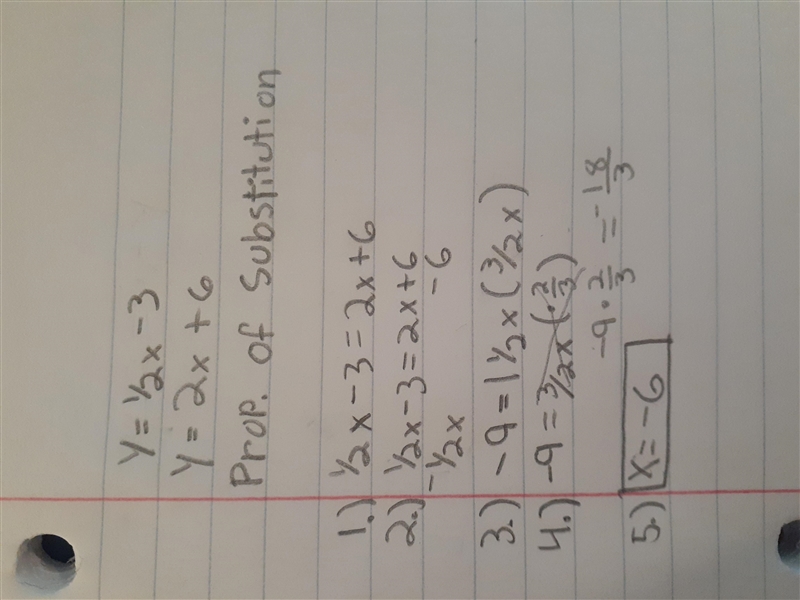 Y = 1/2x - 3
Y = 2x + 6
Prop. of Substitution
1.) 1/2x - 3 = 2x + 6
2.) 1/2x - 3 = 2x + 6
-1/2x -6
3.) -9 = 1 1/2x (3/2x)
4.) -9 = 3/2x (· 2/3)
-9 · 2/3 = -18/3
5.) x = -6